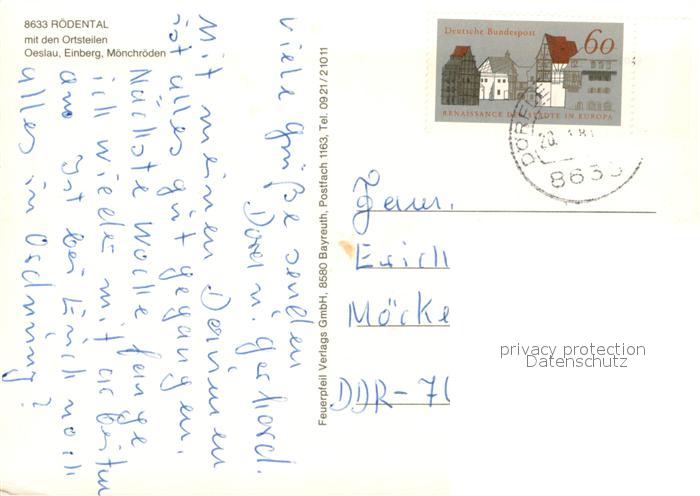 8633 RÖDENTAL
mit den Ortsteilen
Oeslau, Einberg, Mönchröden
Deutsche Bundespost
60
RENAISSANCE DER STÄDTE IN EUROPA
8633
Viele Grüße senden
Doren u. Gerhard.
Mit meinen Daumen
ist alles gut gegangen.
Nächste Woche fange
ich wieder mit arbeiten
an. Ist bei Euch noch
alles in Ordnung?
Feuerpfeil Verlags GmbH, 8580 Bayreuth, Postfach 1163, Tel. 0921/21011
Fam.
Erich
Möcke
DDR-71
privacy protection
Datenschutz